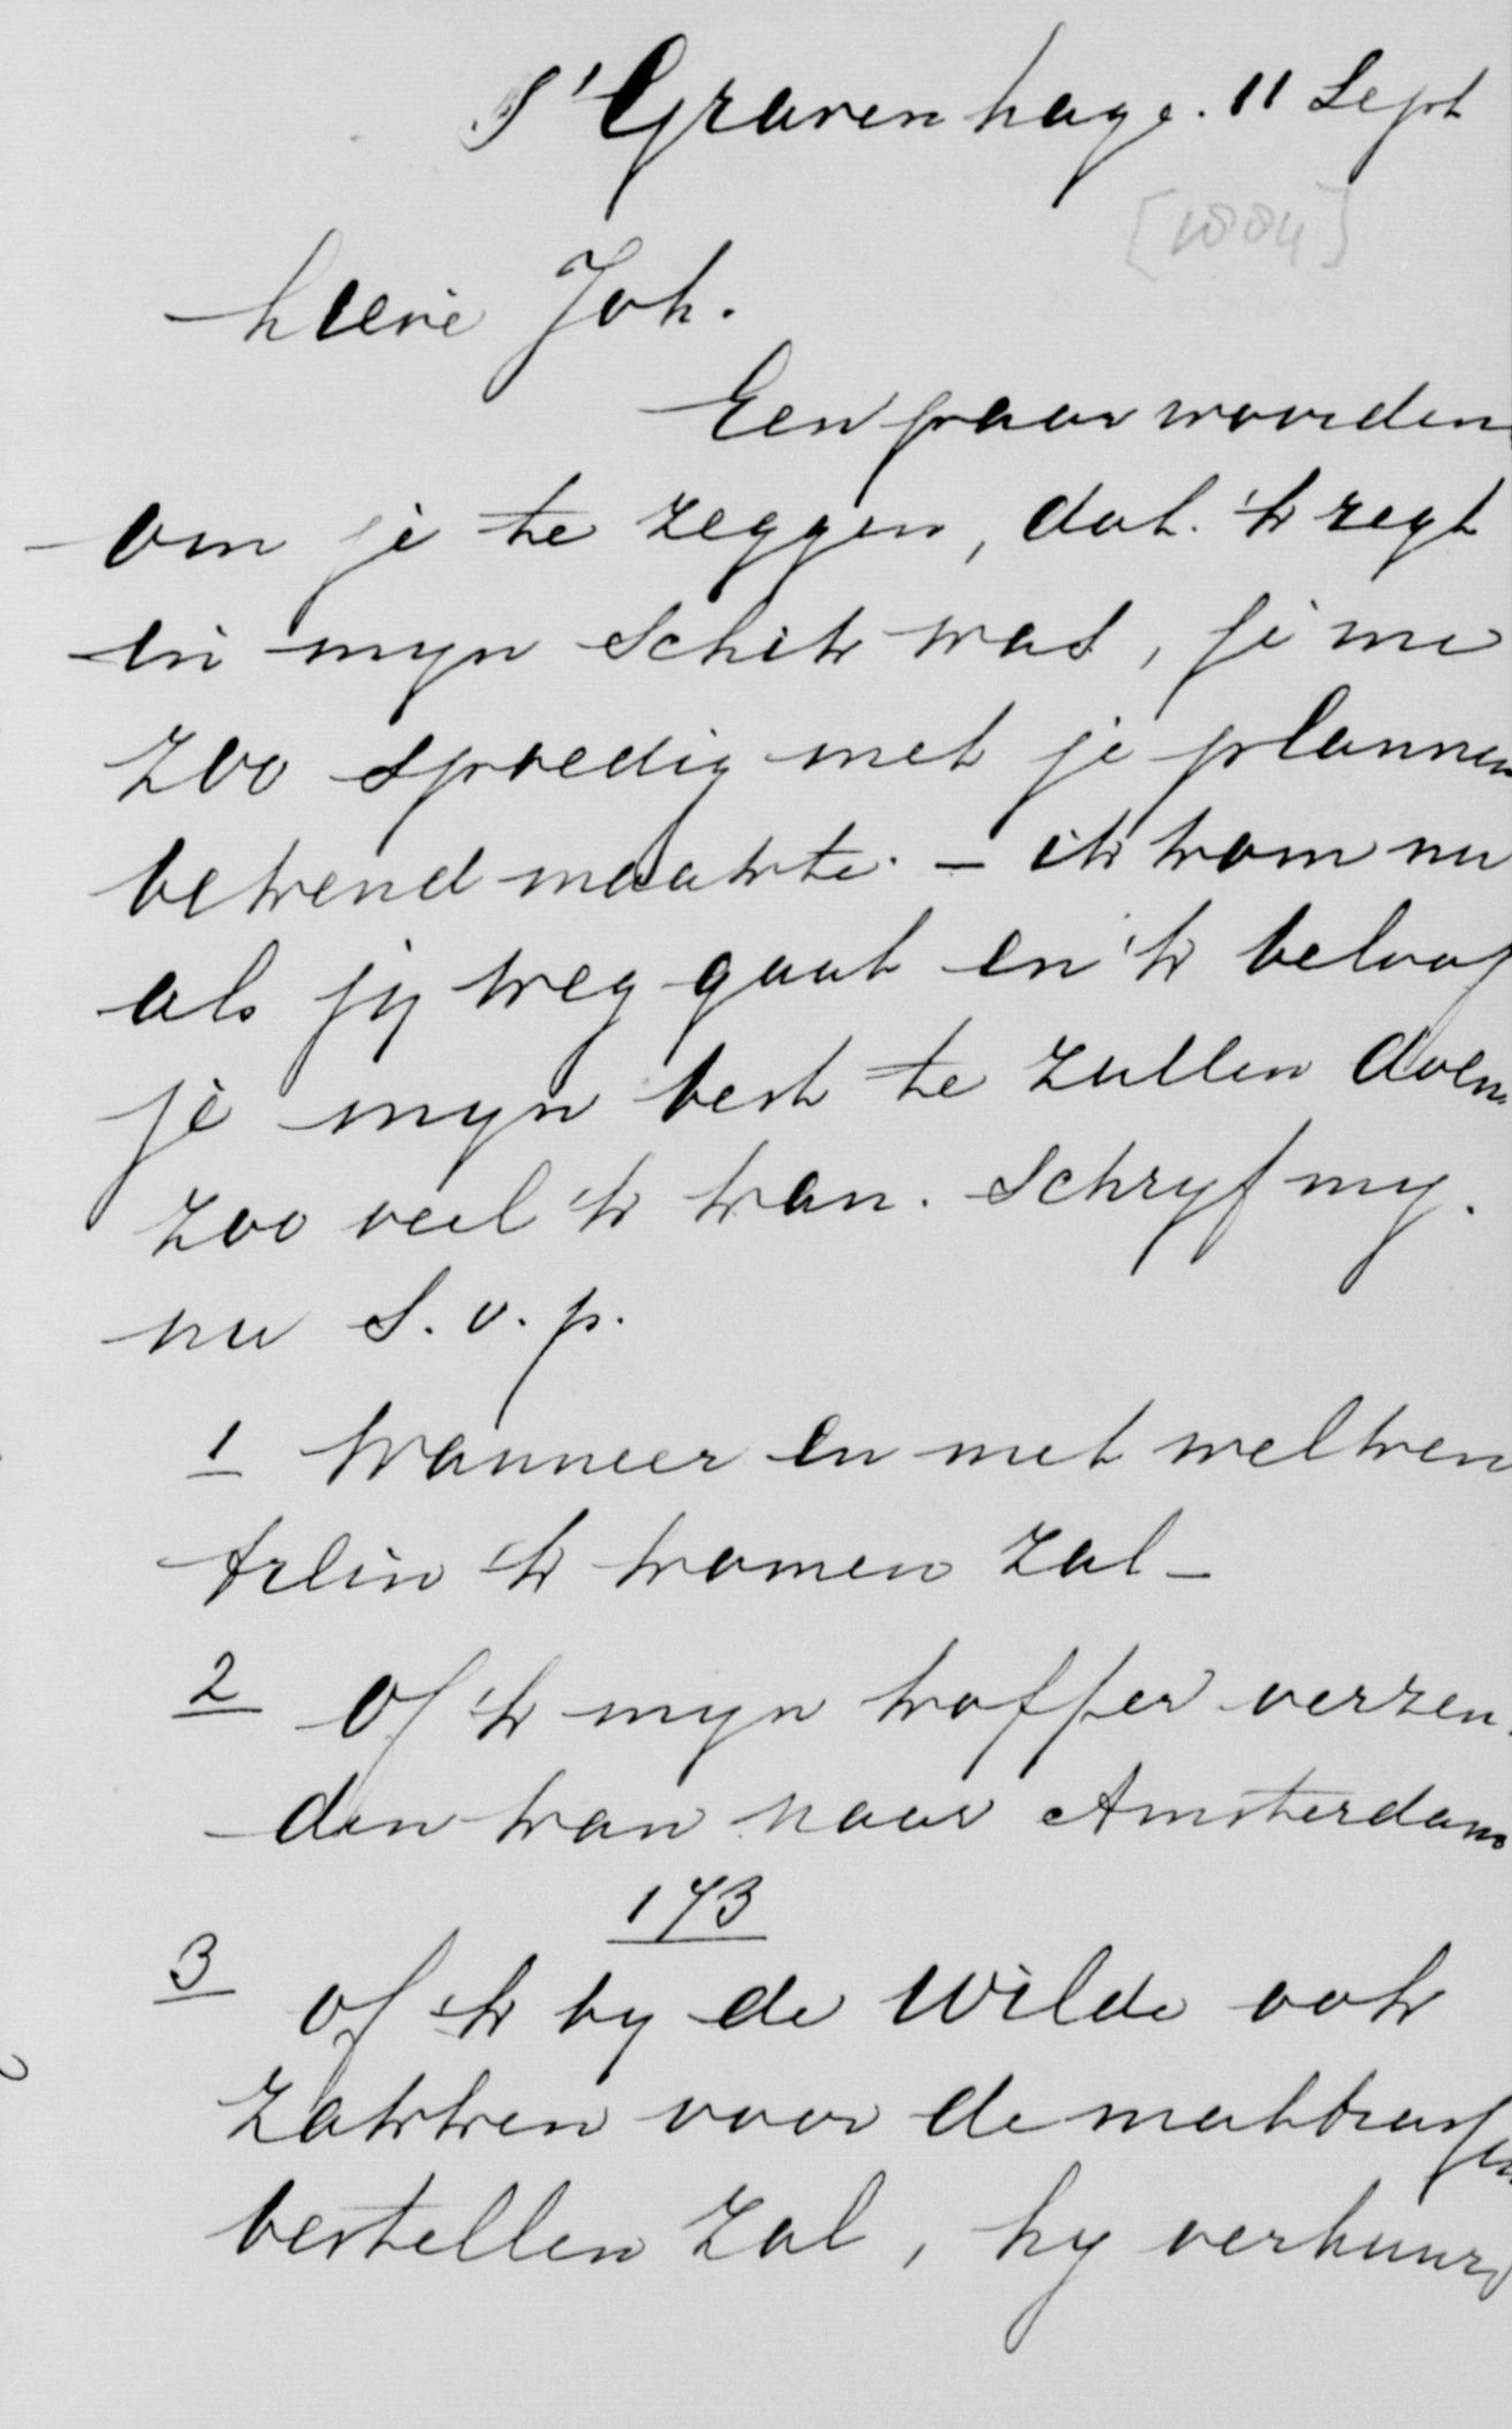 S'Gravenhage. 11 Sept
[1884]
Lieve Joh.
Een paar woorden
om je te zeggen, dat 'k regt
in myn schik was, je me
zoo spoedig met je plannen
bekend maakte. – ik kom nu
als jy weg gaat en 'k beloof
je myn best te zullen doen
zoo veel 'k kan. Schryf my.
nu S.v.p.
1 Wanneer en met welken
trein 'k komen zal –
2 Of 'k myn koffer verzen
den kan naar Amsterdam
173
3 of 'k by de Wilde ook
zakken voor de matrassen
bestellen zal, hy verhuurd